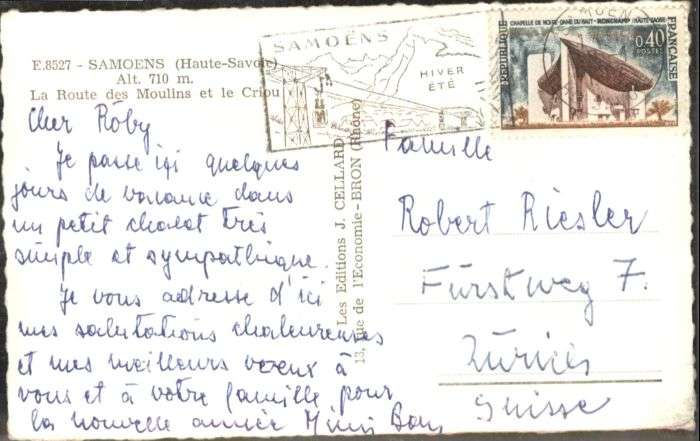 E.8527 - SAMOENS (Haute-Savoie)
Alt. 710 m.
La Route des Moulins et le Criou
Cher Röby
Je passe ici quelques
jours de vacance dans
un petit chalet très
simple et sympathique.
Je vous adresse d'ici
mes salutations chaleureuses
et mes meilleurs voeux à
vous et à votre famille pour
la nouvelle année Mimi
Les Editions J. CELLARD
13, rue de l'Economie-BRON (Rhône)
SAMOËNS
HIVER
ÉTÉ
CHAPELLE DE NOTRE-DAME DU HAUT - RONCHAMP (HAUTE-SAÔNE)
REPUBLIQUE
FRANÇAISE
0,40
POSTES
Famille
Robert Riesler
Fürstweg 7.
Zürich
Suisse